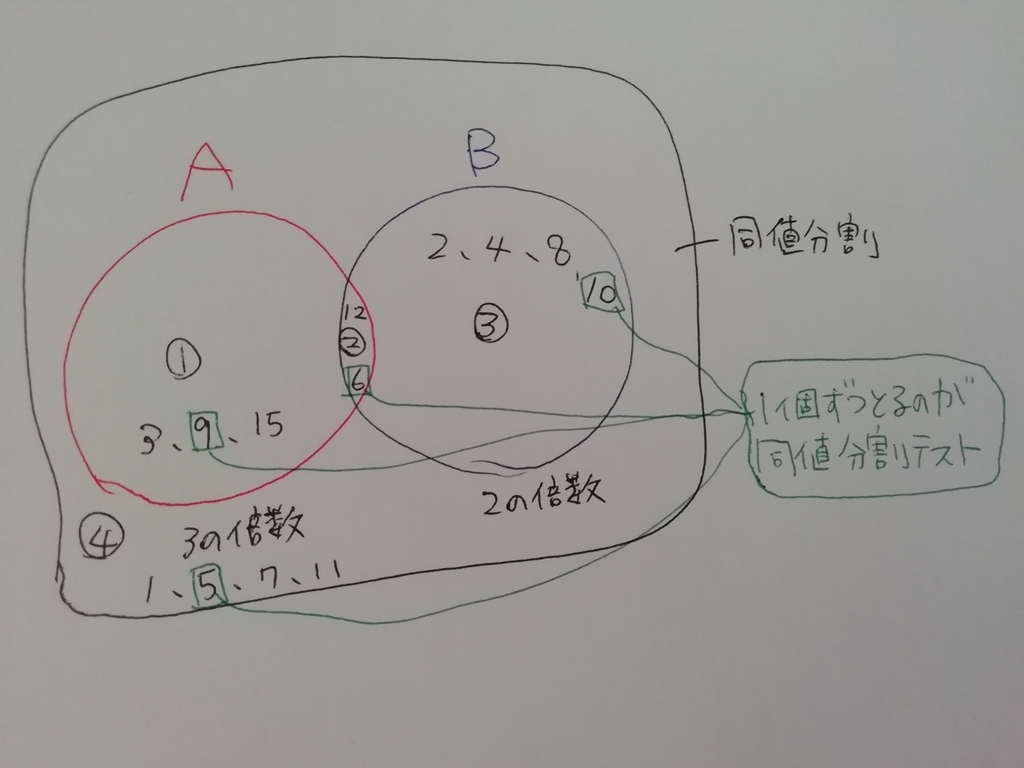 A
B
2、4、8、10
同値分割
12
②
6
①
③
3、9、15
1個ずつとるのが
同値分割テスト
2の倍数
3の倍数
④
1、5、7、11